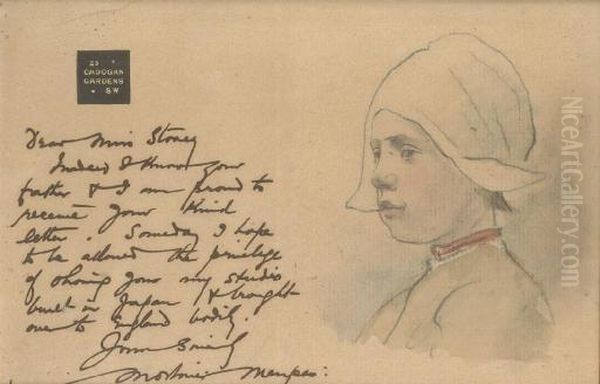 25
CADOGAN
GARDENS
SW
Dear Miss Stoney
Indeed I know your
father & I am proud to
receive your kind
letter. Someday I hope
to be allowed the privilege
of showing your my studio
built in Japan & brought
over to England bodily.
Yours Sincerely
Mortimer Menpes:
NiceArtGallery.com